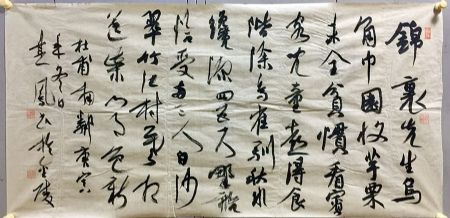 錦裏先生烏
角巾園收芋栗
未全貧慣看賓
客兒童喜得食
階除鳥雀馴秋水
纔深四五尺野航
恰受两三人白沙
翠竹江村暮相
送柴門月色新
杜甫南鄰庚寅
年冬日
鳳於金陵